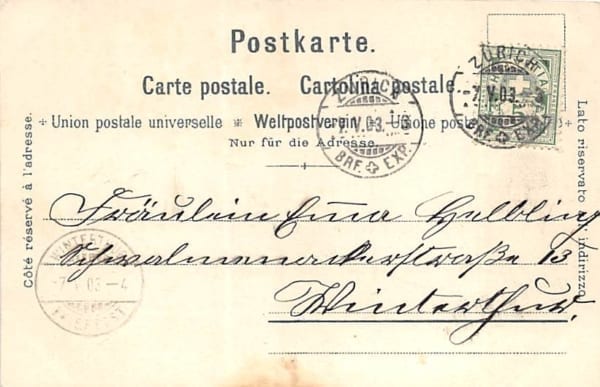 Postkarte.
Carte postale. Cartolina postale.
Union postale universelle Weltpostverein Unione pos
Nur für die Adresse.
Côté réservé à l'adresse.
Lato riservato indirizzo
ZÜRICH
7.V.03.
BRF. EXP.
ZÜRICH 1
-7.V.03.
BRF. EXP.
Fräulein Emma Helbling
Schwalmenackerstraße 13
Winterthur.
WINTERTHUR
7.V.03-4